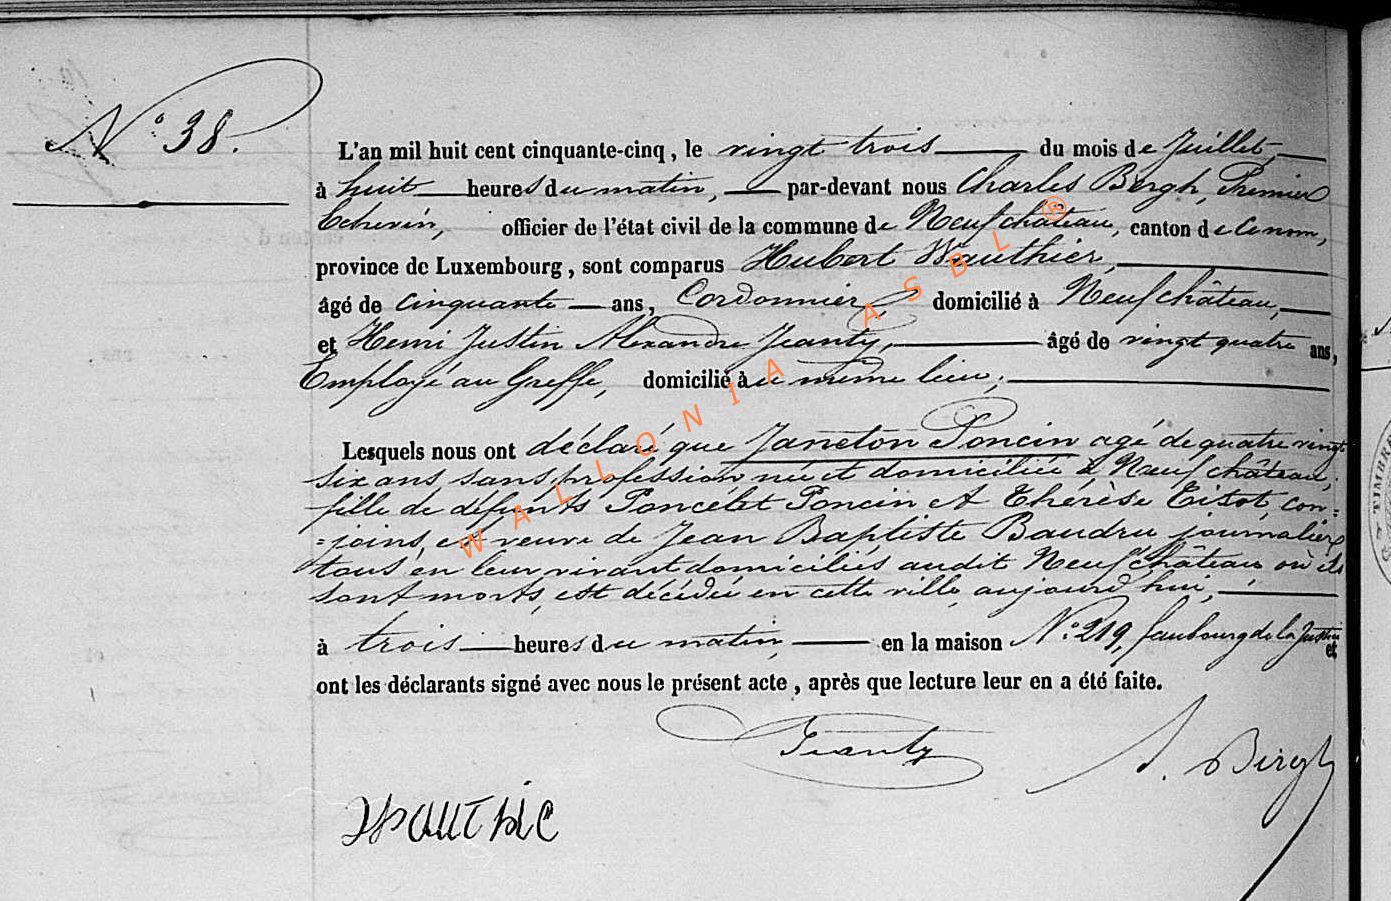 N° 38.
L'an mil huit cent cinquante-cinq, le vingt trois du mois de Juillet,
à huit heures du matin, par-devant nous Charles Bergh, Premier
Echevin, officier de l'état civil de la commune de Neufchâteau, canton de ce nom,
province de Luxembourg, sont comparus Hubert Wauthier,
âgé de cinquante ans, Cordonnier, domicilié à Neufchâteau,
et Henri Justin Alexandre Jeanty, âgé de vingt quatre ans,
Employé au Greffe, domicilié au même lieu;
Lesquels nous ont déclaré que Janeton Poncin agé de quatre vingt
six ans, sans profession née et domiciliée à Neufchâteau,
fille de défunts Poncelet Poncin et Thérèse Titot, con=
=joins, et veuve de Jean Baptiste Baudru journalier
tous en leur vivant domiciliés audit Neufchâteau où ils
sont morts, est décédée en cette ville, aujourd'hui,
à trois heures du matin, en la maison N° 219, faubourg de la Justice et
ont les déclarants signé avec nous le présent acte, après que lecture leur en a été faite.
Jeanty
Bergh
WALLONIA ASBL ®
TIMBRE